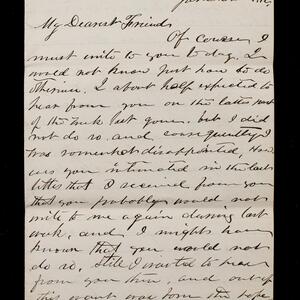 My Dearest Friend
Of course I
must write to you to day. I
would not know just how to do
otherwise. I about half expected to
hear from you on the latter part
of the week last gone. but I did
not do so. and consequently I
was somewhat disappointed, How
ever you intimated in the last
letter that I received from you
that you probably would not
write to me again during last
week. and, I might have
known that you would not
do so. Still I wanted to hear
from you then, and out of
this want was born the hope